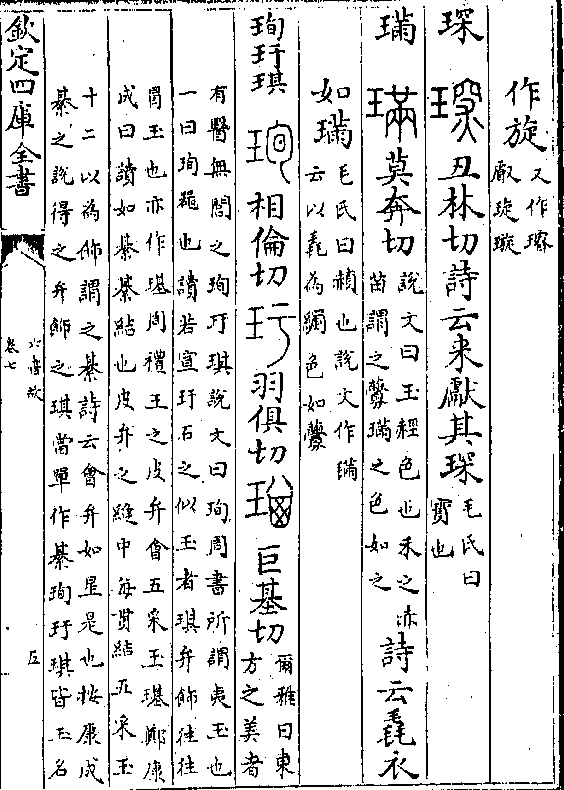 作旋又作璿
叡琁璇
琛 丑林切詩云来獻其琛毛氏曰
寳也
璊 莫奔切說文曰玉經色也禾之赤
苗謂之虋璊之色如之詩云毳衣
如璊毛氏曰赬也說文作璊
云以毳為繝色如虋
珣玗琪 相倫切 羽俱切 巨基切爾雅曰東
方之美者
有醫無閭之珣玗琪說文曰珣周書所謂夷玉也
一曰珣器也讀若宣玗石之似玉者琪弁飾往往
冒玉也亦作璂周禮王之皮弁會五采玉璂鄭康
成曰讀如綦綦結也皮弁之縫中每貫結五采玉
十二以為飾謂之綦詩云會弁如星是也按康成
綦之說得之弁飾之琪當單作綦珣玗琪皆玉名
欽定四庫全書
六書故
卷七
五